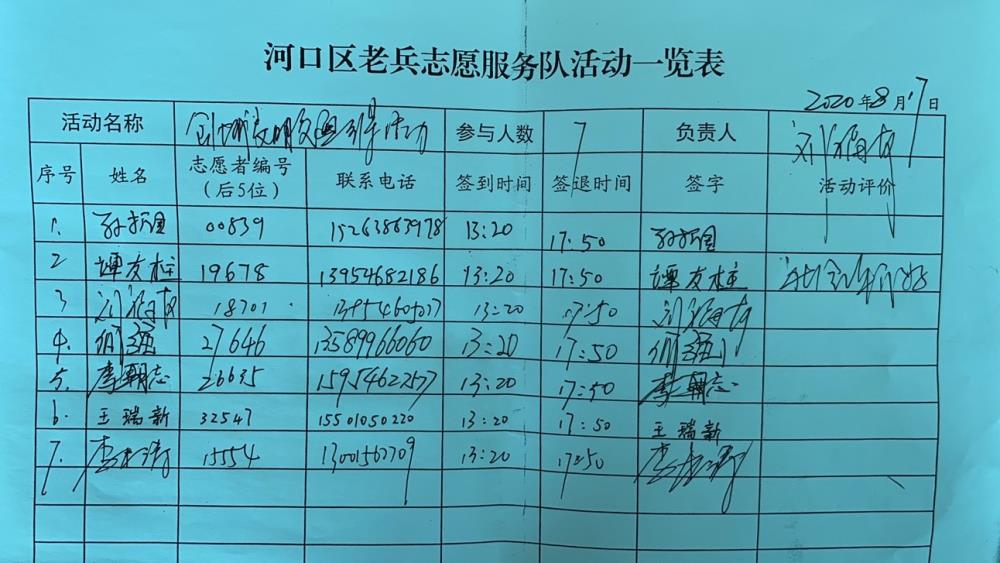 河口区老兵志愿服务队活动一览表
2020年8月17日
活动名称 创城文明交通引导活动 参与人数 7 负责人 刘福友
序号 姓名 志愿者编号(后5位) 联系电话 签到时间 签退时间 签字 活动评价
1. 00839 15263863978 13:20 17:50
2 谭友柱 19678 13954682186 13:20 17:50 谭友柱
3 刘福友 18701 13:20 17:50 刘福友
4. 27646 13589966060 13:20 17:50
5. 李朝志 26635 15954622577 13:20 17:50 李朝志
6. 王瑞新 32547 15501050220 13:20 17:50 王瑞新
7. 15554 13001562709 13:20 17:50